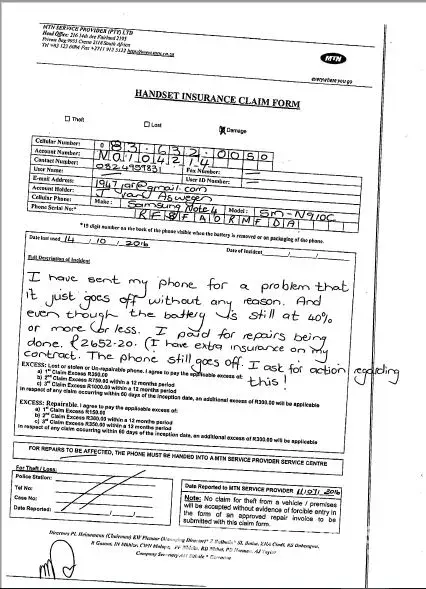 MTN SERVICE PROVIDER (PTY) LTD
Head Office: 216 14th Ave Fairland 2195
Private Bag 9955 Cresta 2118 South Africa
MTN
everywhere you go
HANDSET INSURANCE CLAIM FORM
Theft
Lost
Damage
Cellular Number: 083-632-0050
Account Number: M0104214
Contact Number: 0824959831 Fax Number:
User Name: User ID Number:
E-mail Address: 1947jar@gmail.com
Account Holder: J van Aswegen
Cellular Phone: Make: Samsung Note 4 Model: Sm-N910C
Phone Serial No:* RF8FA0RMFDA
*15 digit number on the back of the phone visible when the battery is removed or on packaging of the phone.
Date last used 14 / 10 / 2016
Date of Incident
Full Description of Incident
I have sent my phone for a problem that
it just goes off without any reason. And
even though the battery is still at 40%
or more or less. I paid for repairs being
done. R2652-20. (I have extra insurance on my
contract. The phone still goes off. I ast for action regarding
this!
EXCESS: Lost or stolen or Un-repairable phone. I agree to pay the applicable excess of:
a) 1st Claim Excess R300.00
b) 2nd Claim Excess R750.00 within a 12 months period
c) 3rd Claim Excess R1000.00 within a 12 months period
In respect of any claim occurring within 60 days of the inception date, an additional excess of R300.00 will be applicable
EXCESS: Repairable. I agree to pay the applicable excess of:
a) 1st Claim Excess R150.00
b) 2nd Claim Excess R300.00 within a 12 months period
c) 3rd Claim Excess R350.00 within a 12 months period
In respect of any claim occurring within 60 days of the inception date, an additional excess of R300.00 will be applicable
FOR REPAIRS TO BE AFFECTED, THE PHONE MUST BE HANDED INTO A MTN SERVICE PROVIDER SERVICE CENTRE
For Theft / Loss:
Police Station:
Tel No:
Case No:
Date Reported:
Date Reported to MTN SERVICE PROVIDER 11/07/2016
Note: No claim for theft from a vehicle / premises
will be accepted without evidence of forcible entry in
the form of an approved repair invoice to be
submitted with this claim form.